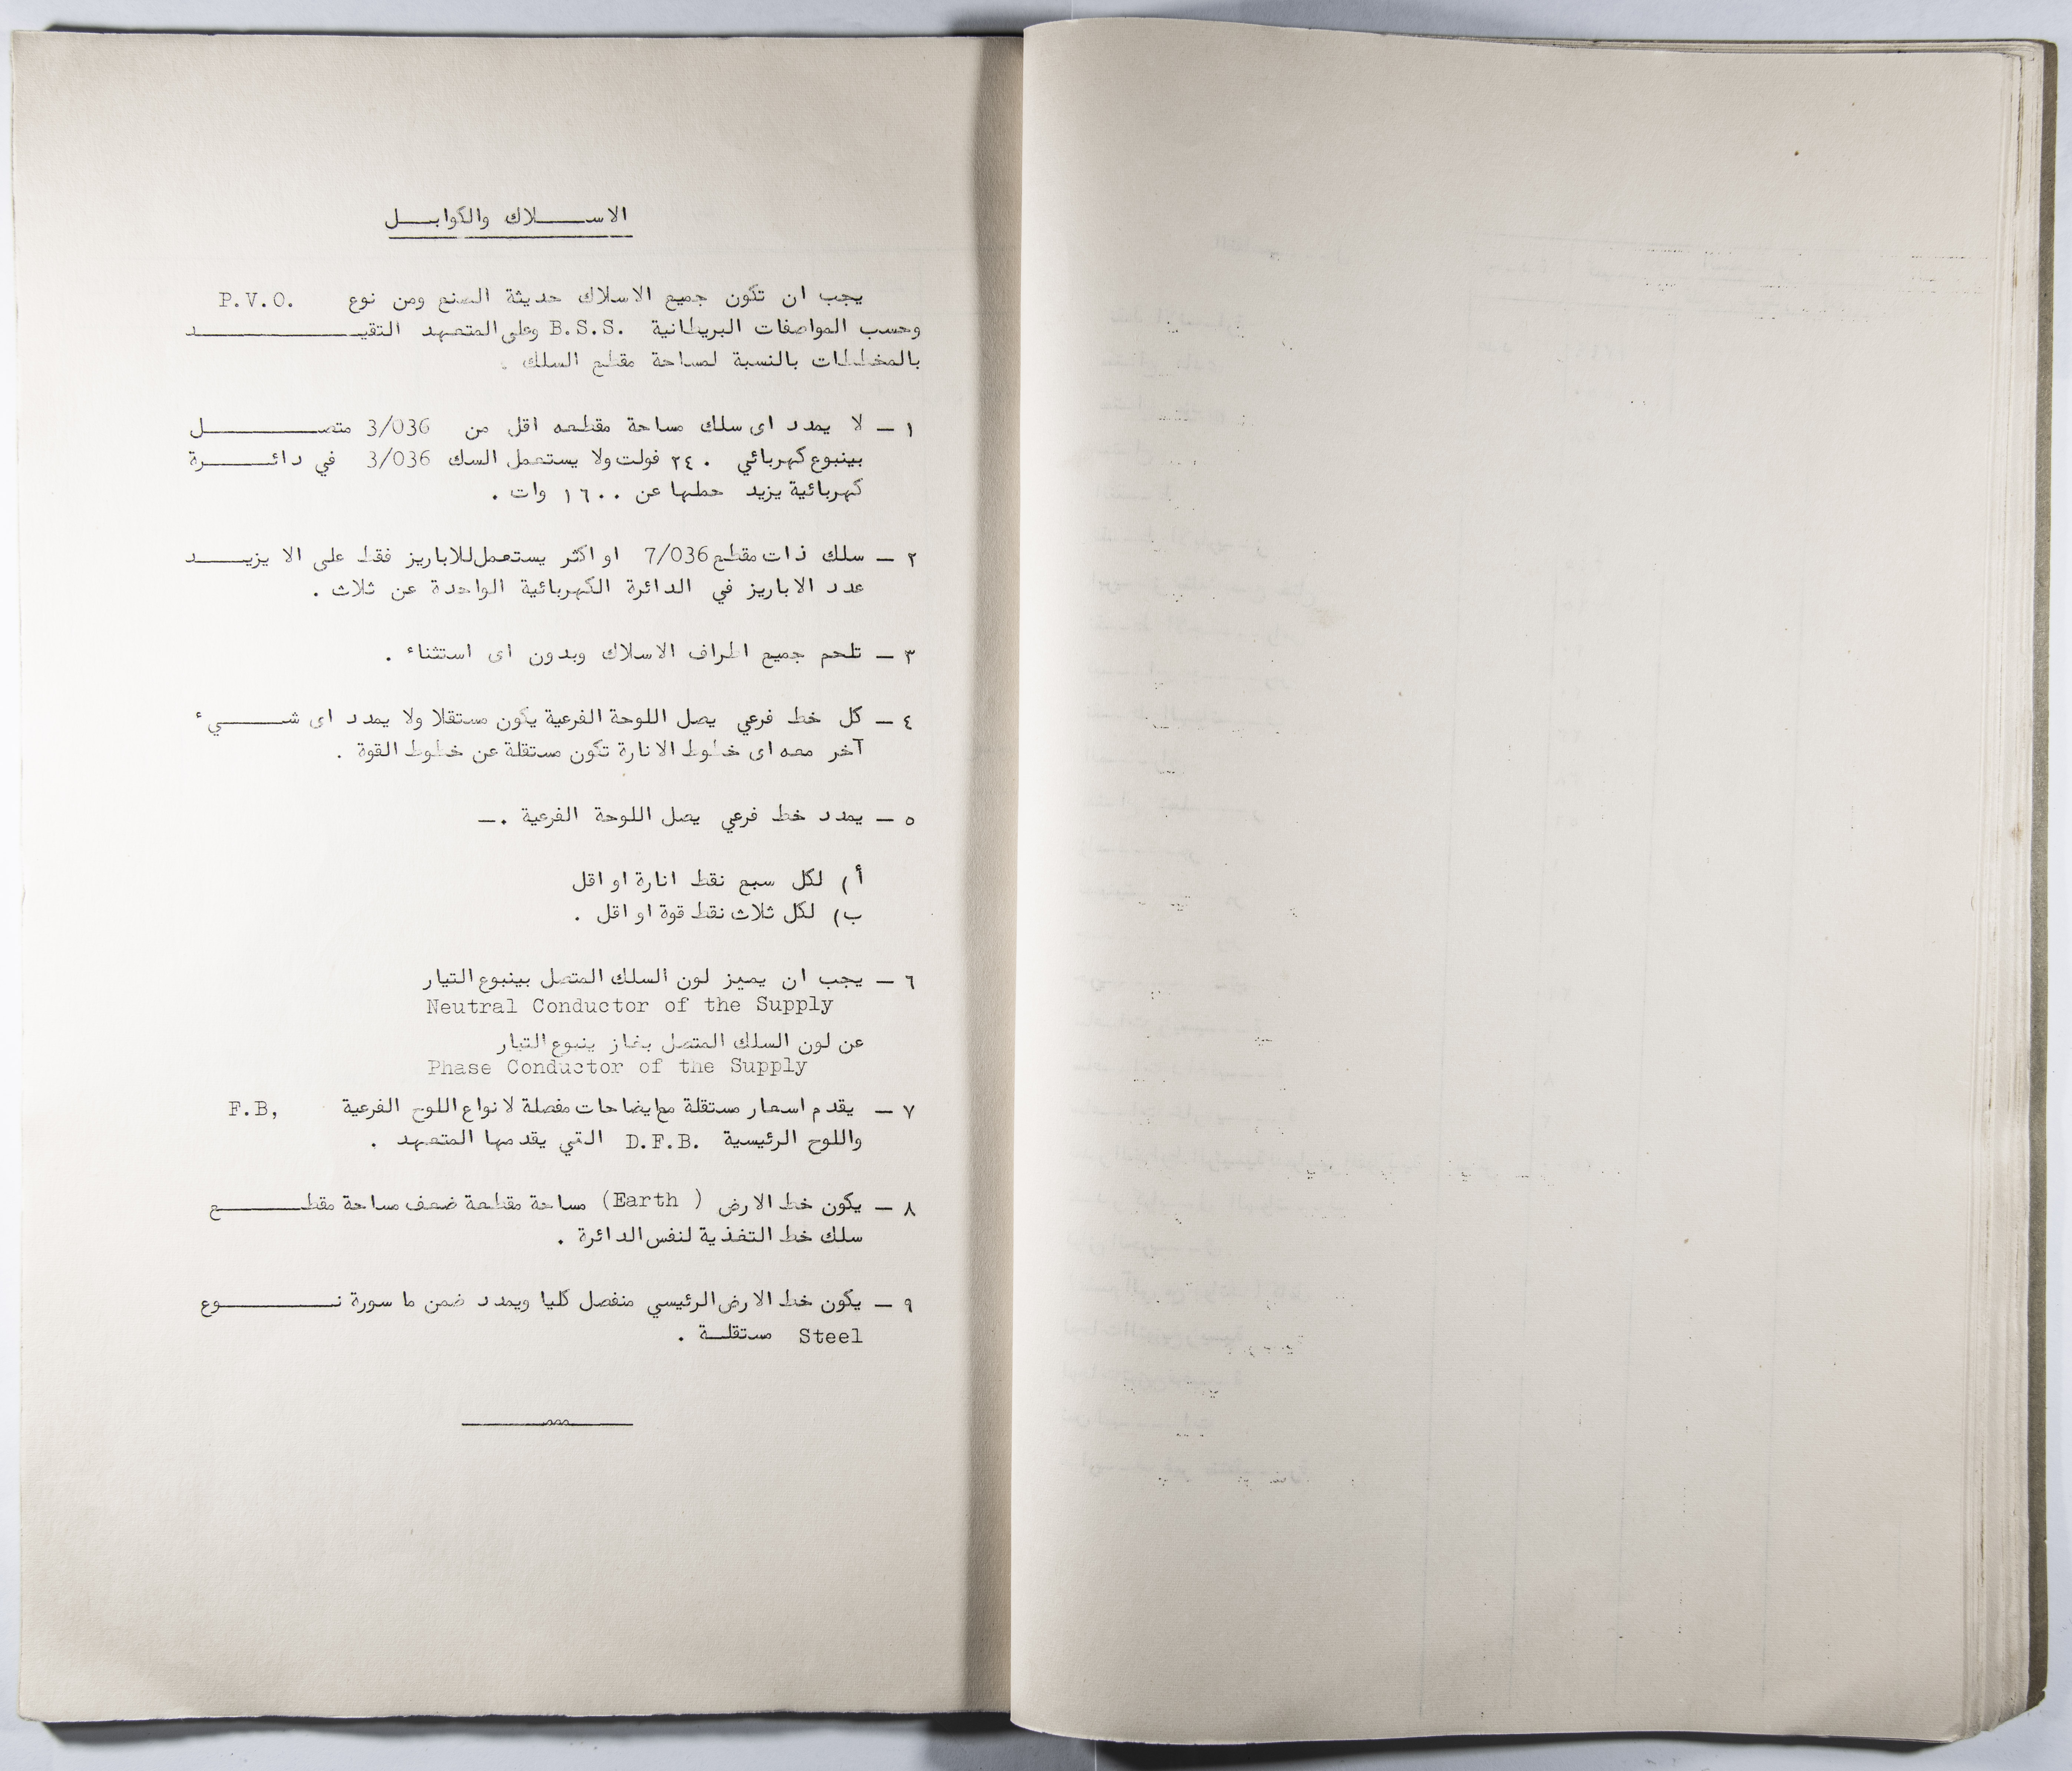 الاسلاك والكوابل
يجب ان تكون جميع الاسلاك حديثة الصنع ومن نوع P.V.O.
وحسب المواصفات البريطانية B.S.S. وعلى المتعهد التقيد
بالمخططات بالنسبة لمساحة مقطع السلك .
١ – لا يمدد اى سلك مساحة مقطعه اقل من 3/036 متصل
بينبوع كهربائي ٢٤٠ فولت ولا يستعمل السك 3/036 في دائرة
كهربائية يزيد حملها عن ١٦٠٠ وات .
٢ – سلك ذات مقطع 7/036 او اكثر يستعمل للاباريز فقط على الا يزيد
عدد الاباريز في الدائرة الكهربائية الواحدة عن ثلاث .
٣ – تلحم جميع اطراف الاسلاك وبدون اى استثناء .
٤ – كل خط فرعي يصل اللوحة الفرعية يكون مستقلا ولا يمدد اى شيء
آخر معه اى خطوط الانارة تكون مستقلة عن خطوط القوة .
٥ – يمدد خط فرعي يصل اللوحة الفرعية .–
أ ) لكل سبع نقط انارة او اقل
ب) لكل ثلاث نقط قوة او اقل .
٦ – يجب ان يميز لون السلك المتصل بينبوع التيار
Neutral Conductor of the Supply
عن لون السلك المتصل بغاز ينبوع التيار
Phase Conductor of the Supply
٧ – يقدم اسعار مستقلة مع ايضاحات مفصلة لانواع اللوح الفرعية F.B,
واللوح الرئيسية D.F.B. التي يقدمها المتعهد .
٨ – يكون خط الارض ( Earth) مساحة مقطعة ضعف مساحة مقطع
سلك خط التغذية لنفس الدائرة .
٩ – يكون خط الارض الرئيسي منفصل كليا ويمدد ضمن ماسورة نوع
Steel مستقلة .